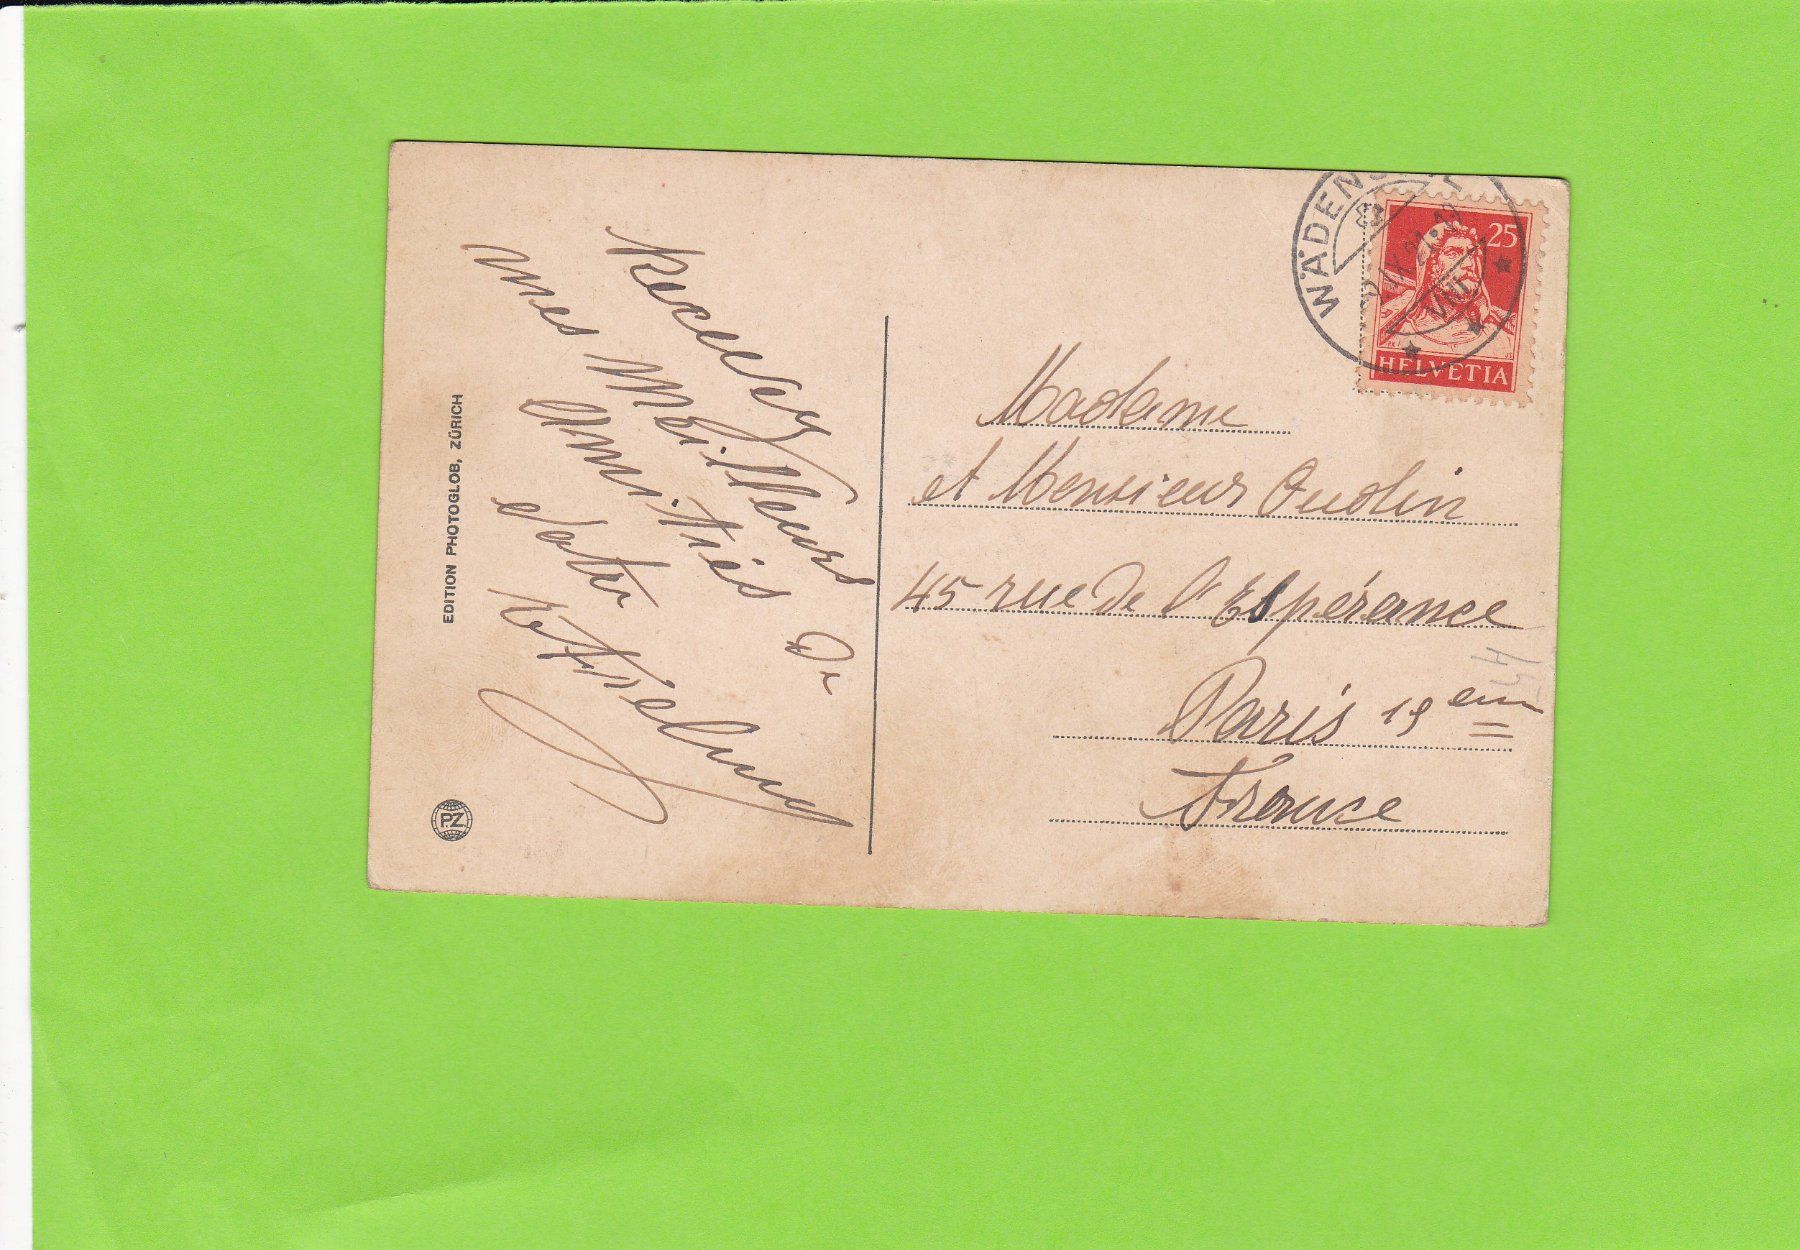 Recevez
mes Meilleurs
Amitiés de
votre
EDITION PHOTOGLOB, ZÜRICH
PZ
WÄDENSWIL
25
HELVETIA
Madame
et Monsieur Oudin
45 rue de l'Espérance
Paris 13 eme
France